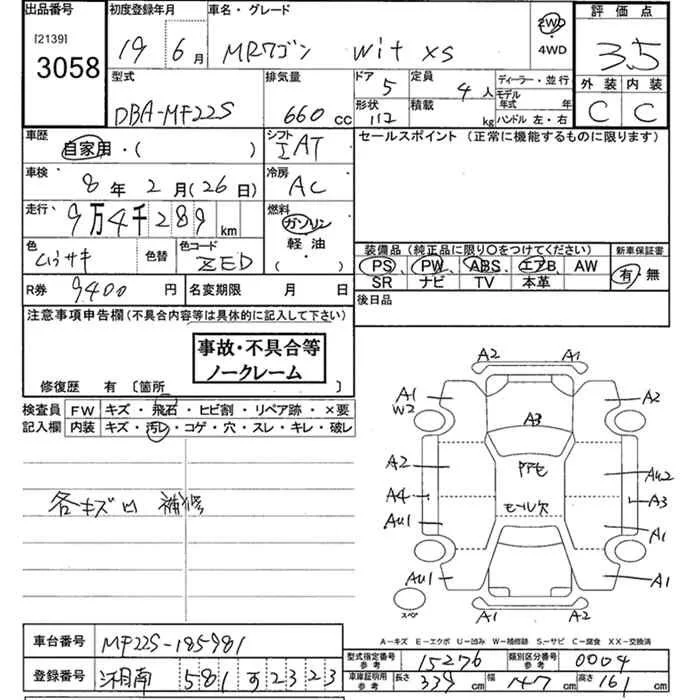 出品番号 初度登録年月 車名・グレード 評価点
[2139]
3058 19 6月 MRワゴン wit XS 2WD・4WD 3.5
型式 排気量 ドア 定員 ディーラー・並行 外装 内装
DBA-MF22S 660cc 5 4人 モデル年式 年 C C
形状 積載 ハンドル 左・右
112 kg
車歴 シフト セールスポイント (正常に機能するものに限ります)
自家用・( ) IAT
車検 冷房
8年2月(26日) AC
走行 燃料
9万4千289km ガソリン
軽油
( )
色 色替 色コード 装備品 (純正品に限り〇をつけてください) 新車保証書
ムラサキ ZED PS、PW、ABS、エアB、AW 有・無
SR ナビ TV 本革
R券 9400円 名変期限 月 日 後日品
注意事項申告欄(不具合内容等は具体的に記入して下さい)
事故・不具合等
ノークレーム
修復歴 有 〔箇所
検査員 FW キズ・飛石・ヒビ割・リペア跡・×要
記入欄 内装 キズ・汚レ・コゲ・穴・スレ・キレ・破レ
各キズ凹 補修
A2 A1
A1 A2
W2 A3
A2 AU2
A4 A3
モール欠
AU1 A1
AU1 A1
スペア A1 A2
A-キズ E-エクボ U-凹み W-補修跡 S-サビ C-腐食 XX-交換済
車台番号 MF22S-185981
型式指定番号 参考 15276 類別区分番号 参考 0004
登録番号 湘南 581 す 2323
車庫証明用 参考 長さ 339cm 幅 147cm 高さ 161cm